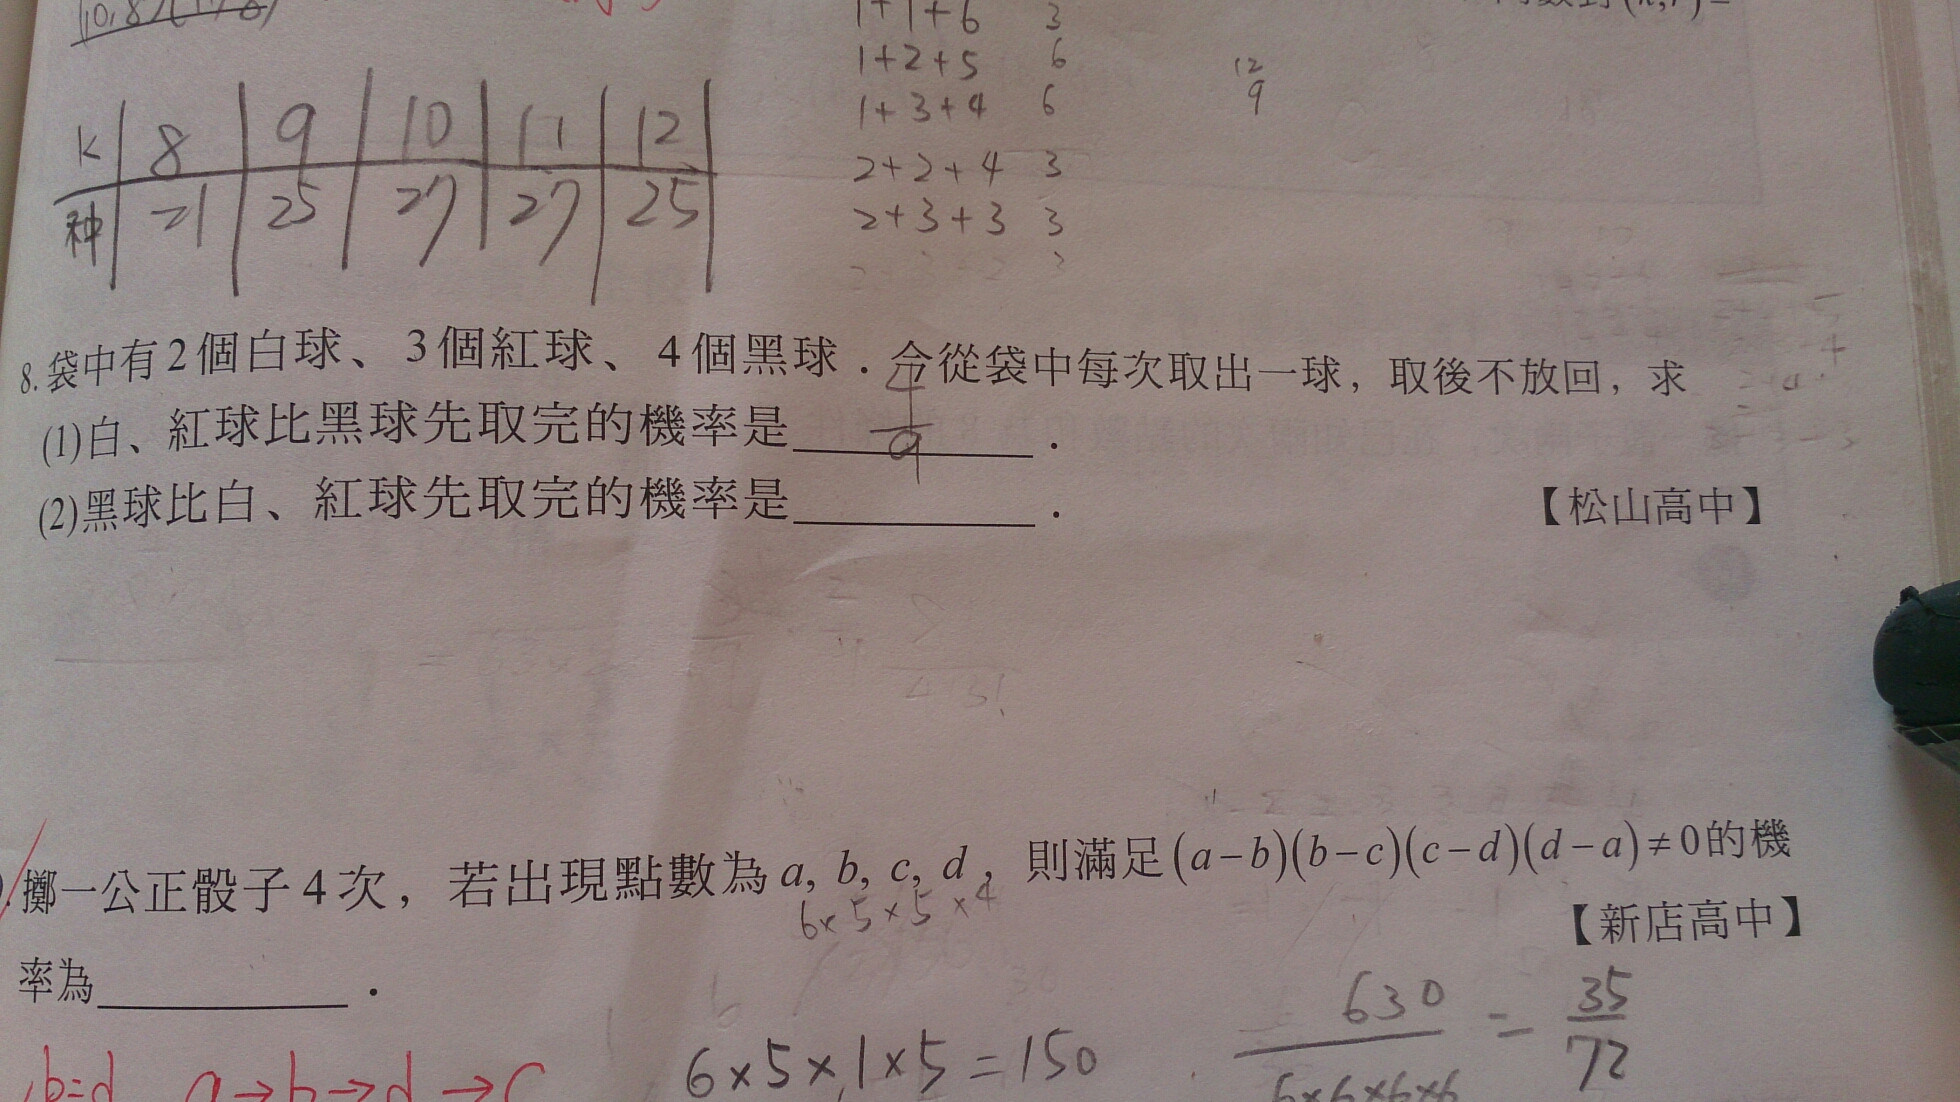 1+1+6 3
1+2+5 6
1+3+4 6
2+2+4 3
2+3+3 3
12
9
K 8 9 10 11 12
种 21 25 27 27 25
8.袋中有2個白球、3個紅球、4個黑球.今從袋中每次取出一球,取後不放回,求
(1)白、紅球比黑球先取完的機率是 4/9 .
(2)黑球比白、紅球先取完的機率是______.
【松山高中】
擲一公正骰子4次,若出現點數為a, b, c, d,則滿足(a−b)(b−c)(c−d)(d−a)≠0的機
6×5×5×4
【新店高中】
率為______.
630/6×6×6×6 = 35/72
6×5×1×5=150
b=d a→b→d→c